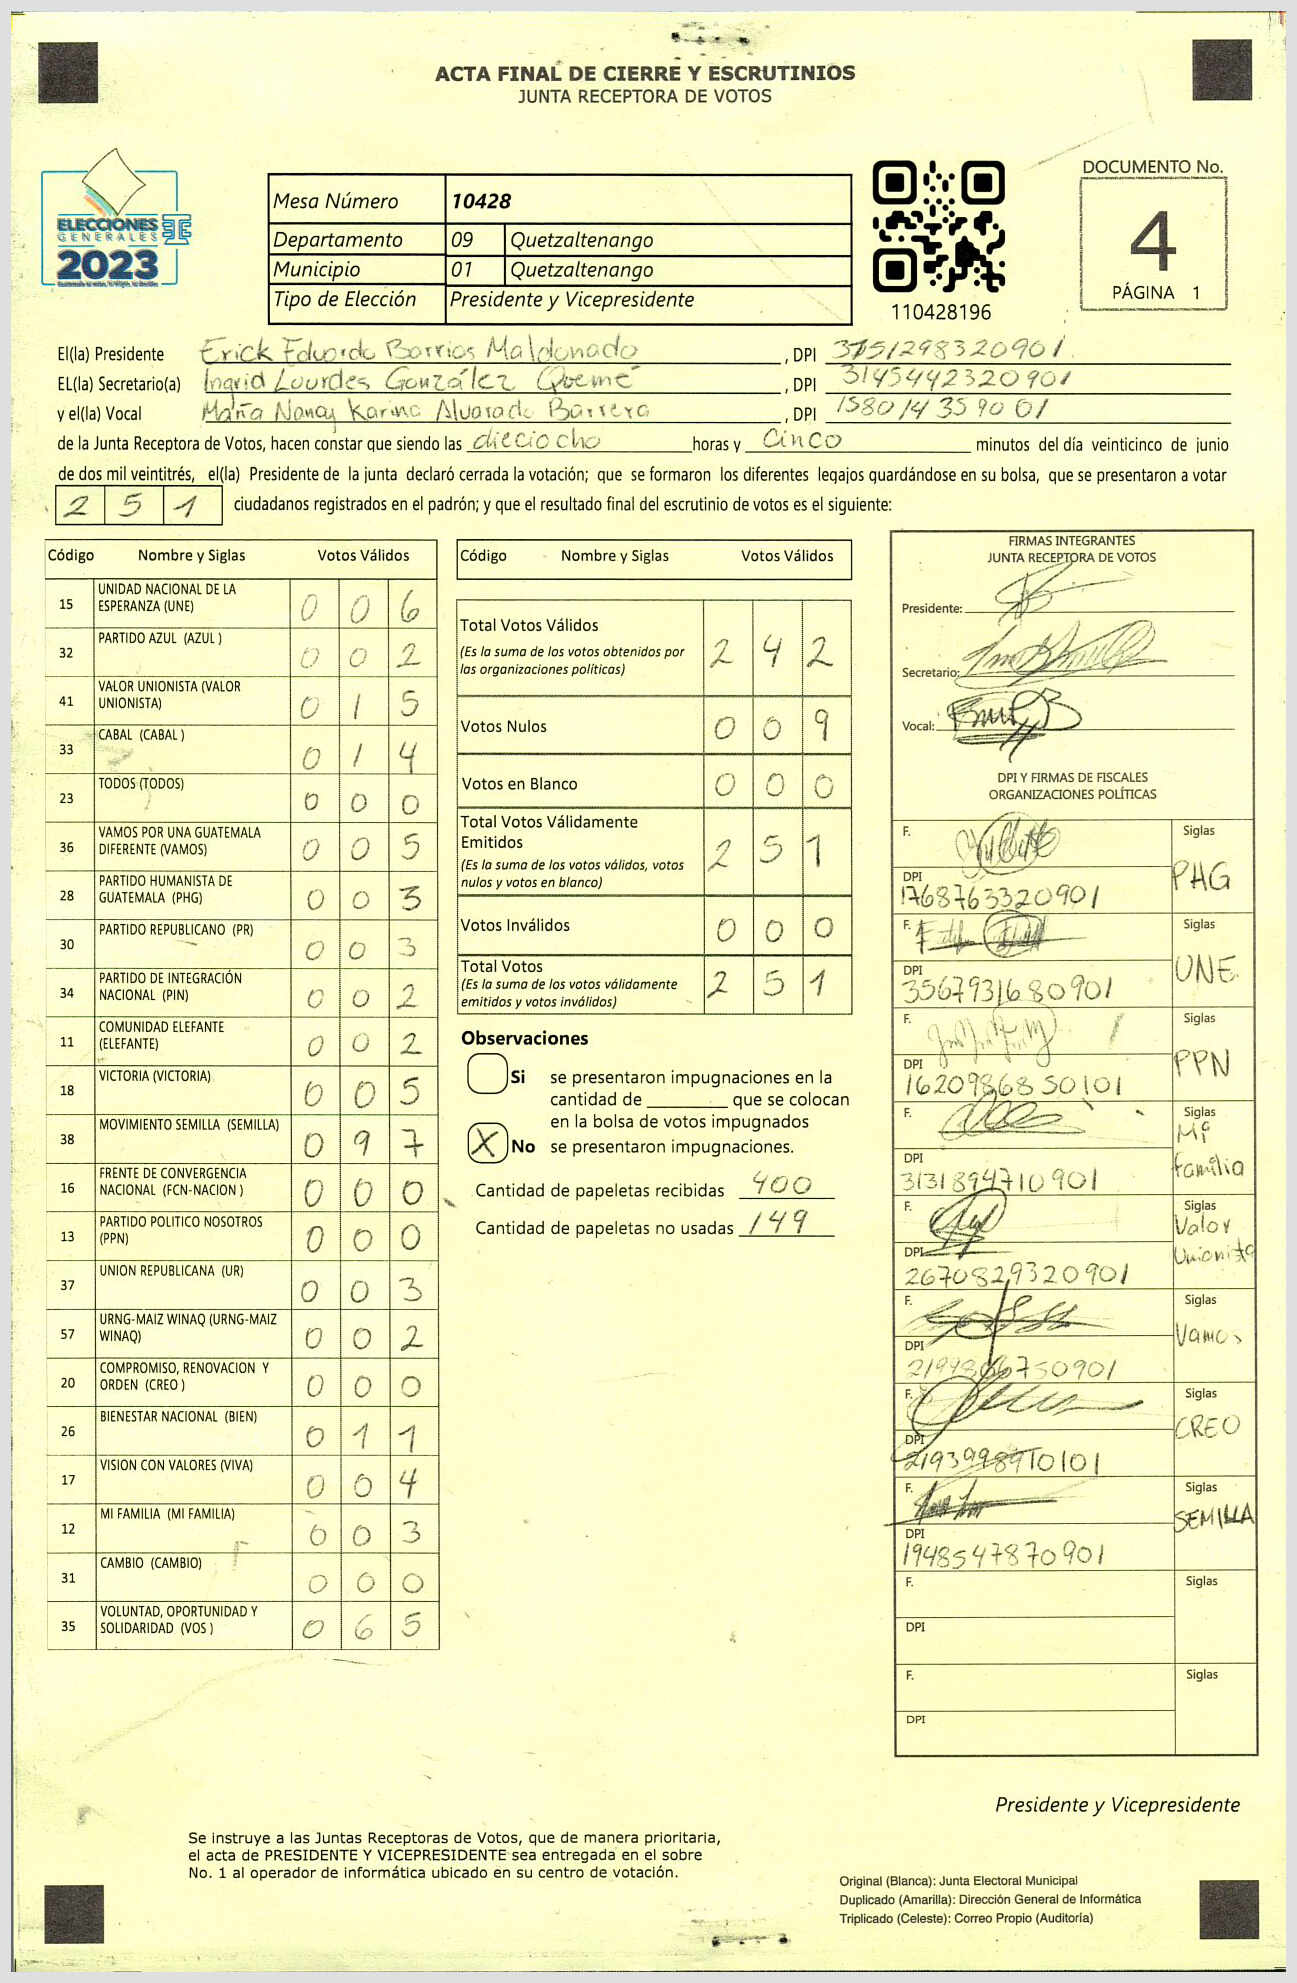 ACTA FINAL DE CIERRE Y ESCRUTINIOS
JUNTA RECEPTORA DE VOTOS
ELECCIONES
GENERALES
2023
Mesa Número 10428
Departamento 09 Quetzaltenango
Municipio 01 Quetzaltenango
Tipo de Elección Presidente y Vicepresidente
110428196
DOCUMENTO No.
4
PÁGINA 1
El(la) Presidente Erick Eduardo Barrios Maldonado, DPI 3751298320901
EL(la) Secretario(a) Ingrid Lourdes González Quemé, DPI 3145442320901
y el(la) Vocal María Nancy Karina Alvarado Barrera, DPI 1580143590901
de la Junta Receptora de Votos, hacen constar que siendo las dieciocho horas y cinco minutos del día veinticinco de junio
de dos mil veintitrés, el(la) Presidente de la junta declaró cerrada la votación; que se formaron los diferentes legajos guardándose en su bolsa, que se presentaron a votar
251 ciudadanos registrados en el padrón; y que el resultado final del escrutinio de votos es el siguiente:
Código Nombre y Siglas Votos Válidos
15 UNIDAD NACIONAL DE LA ESPERANZA (UNE) 0 0 6
32 PARTIDO AZUL (AZUL ) 0 0 2
41 VALOR UNIONISTA (VALOR UNIONISTA) 0 1 5
33 CABAL (CABAL ) 0 1 4
23 TODOS (TODOS) 0 0 0
36 VAMOS POR UNA GUATEMALA DIFERENTE (VAMOS) 0 0 5
28 PARTIDO HUMANISTA DE GUATEMALA (PHG) 0 0 3
30 PARTIDO REPUBLICANO (PR) 0 0 3
34 PARTIDO DE INTEGRACIÓN NACIONAL (PIN) 0 0 2
11 COMUNIDAD ELEFANTE (ELEFANTE) 0 0 2
18 VICTORIA (VICTORIA) 0 0 5
38 MOVIMIENTO SEMILLA (SEMILLA) 0 9 7
16 FRENTE DE CONVERGENCIA NACIONAL (FCN-NACION ) 0 0 0
13 PARTIDO POLITICO NOSOTROS (PPN) 0 0 0
37 UNION REPUBLICANA (UR) 0 0 3
57 URNG-MAIZ WINAQ (URNG-MAIZ WINAQ) 0 0 2
20 COMPROMISO, RENOVACION Y ORDEN (CREO ) 0 0 0
26 BIENESTAR NACIONAL (BIEN) 0 1 1
17 VISION CON VALORES (VIVA) 0 0 4
12 MI FAMILIA (MI FAMILIA) 0 0 3
31 CAMBIO (CAMBIO) 0 0 0
35 VOLUNTAD, OPORTUNIDAD Y SOLIDARIDAD (VOS ) 0 6 5
Código Nombre y Siglas Votos Válidos
Total Votos Válidos 2 4 2
(Es la suma de los votos obtenidos por
las organizaciones políticas)
Votos Nulos 0 0 9
Votos en Blanco 0 0 0
Total Votos Válidamente
Emitidos 2 5 1
(Es la suma de los votos válidos, votos
nulos y votos en blanco)
Votos Inválidos 0 0 0
Total Votos 2 5 1
(Es la suma de los votos válidamente
emitidos y votos inválidos)
Observaciones
Si se presentaron impugnaciones en la
cantidad de ________ que se colocan
en la bolsa de votos impugnados
X No se presentaron impugnaciones.
Cantidad de papeletas recibidas 400
Cantidad de papeletas no usadas 149
FIRMAS INTEGRANTES
JUNTA RECEPTORA DE VOTOS
Presidente:
Secretario:
Vocal:
DPI Y FIRMAS DE FISCALES
ORGANIZACIONES POLÍTICAS
F. Siglas PHG
DPI 1768763320901
F. Siglas UNE
DPI 3567931680901
F. Siglas PPN
DPI 1620986850101
F. Siglas Mi familia
DPI 3131894710901
F. Siglas Valor Unionista
DPI 2670829320901
F. Siglas Vamos
DPI 2194866750901
F. Siglas CREO
DPI 2193998910101
F. Siglas SEMILLA
DPI 1948547870901
F. Siglas
DPI
F. Siglas
DPI
Presidente y Vicepresidente
Se instruye a las Juntas Receptoras de Votos, que de manera prioritaria,
el acta de PRESIDENTE Y VICEPRESIDENTE sea entregada en el sobre
No. 1 al operador de informática ubicado en su centro de votación.
Original (Blanca): Junta Electoral Municipal
Duplicado (Amarilla): Dirección General de Informática
Triplicado (Celeste): Correo Propio (Auditoría)